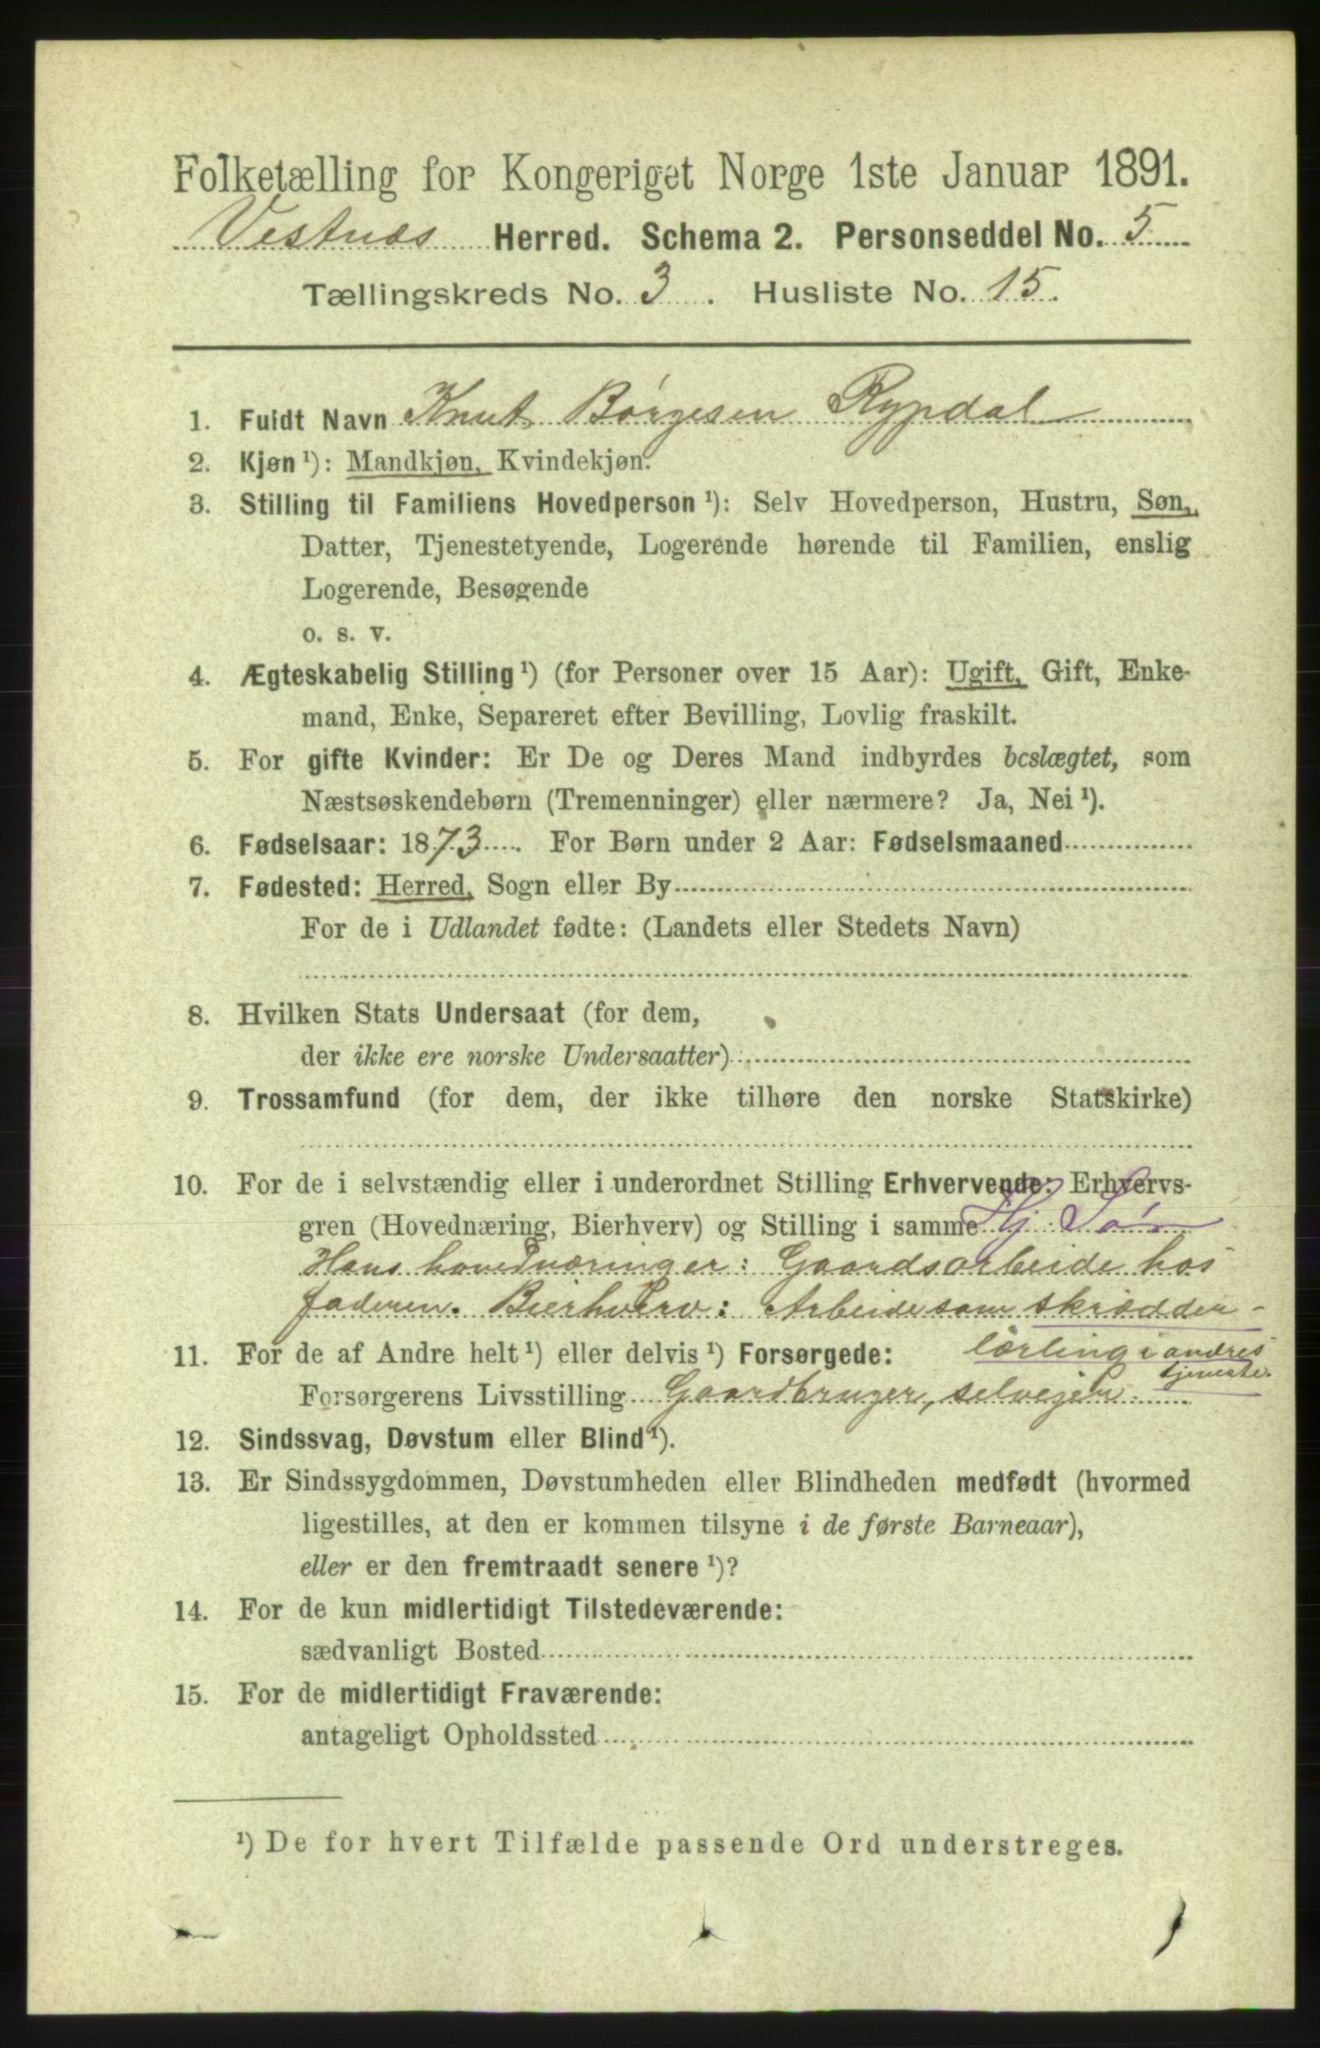 Folketælling for Kongeriget Norge 1ste Januar 1891.
Vestnæs Herred. Schema 2. Personseddel No. 5
Tællingskreds No. 3. Husliste No. 15.
1. Fuldt Navn Knut Børgesen Rypdal
2. Kjøn ¹): Mandkjøn, Kvindekjøn.
3. Stilling til Familiens Hovedperson ¹): Selv Hovedperson, Hustru, Søn,
Datter, Tjenestetyende, Logerende hørende til Familien, enslig
Logerende, Besøgende
o. s. v.
4. Ægteskabelig Stilling ¹) (for Personer over 15 Aar): Ugift, Gift, Enke-
mand, Enke, Separeret efter Bevilling, Lovlig fraskilt.
5. For gifte Kvinder: Er De og Deres Mand indbyrdes beslægtet, som
Næstsøskendebørn (Tremenninger) eller nærmere? Ja, Nei ¹).
6. Fødselsaar: 1873. For Børn under 2 Aar: Fødselsmaaned
7. Fødested: Herred, Sogn eller By
For de i Udlandet fødte: (Landets eller Stedets Navn)
8. Hvilken Stats Undersaat (for dem,
der ikke ere norske Undersaatter)
9. Trossamfund (for dem, der ikke tilhøre den norske Statskirke)
10. For de i selvstændig eller i underordnet Stilling Erhvervende: Erhvervs-
gren (Hovednæring, Bierhverv) og Stilling i samme Hj. Søn
Hans hovednæringer: Gaardsarbeide hos
faderen. Bierhverv: Arbeide som skrædder-
lærling i andres
tjeneste.
11. For de af Andre helt ¹) eller delvis ¹) Forsørgede:
Forsørgerens Livsstilling Gaardbruger, selveier.
12. Sindssvag, Døvstum eller Blind ¹).
13. Er Sindssygdommen, Døvstumheden eller Blindheden medfødt (hvormed
ligestilles, at den er kommen tilsyne i de første Barneaar),
eller er den fremtraadt senere ¹)?
14. For de kun midlertidigt Tilstedeværende:
sædvanligt Bosted
15. For de midlertidigt Fraværende:
antageligt Opholdssted
¹) De for hvert Tilfælde passende Ord understreges.